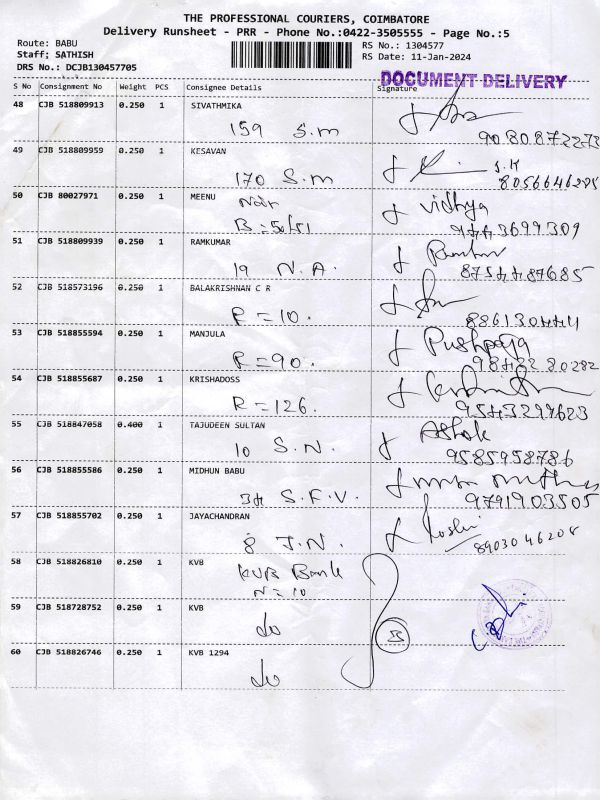 THE PROFESSIONAL COURIERS, COIMBATORE
Delivery Runsheet - PRR - Phone No.:0422-3505555 - Page No.:5
Route: BABU
RS No.: 1304577
Staff; SATHISH
RS Date: 11-Jan-2024
DRS No.: DCJB130457705
DOCUMENT DELIVERY
S No Consignment No Weight PCS Consignee Details Signature
48 CJB 518809913 0.250 1 SIVATHMIKA
159 S.M
9080872273
49 CJB 518809959 0.250 1 KESAVAN
170 S.M
8056646285
50 CJB 80027971 0.250 1 MEENU
Vidhya
B=50/51
9443699309
51 CJB 518809939 0.250 1 RAMKUMAR
19 N.A.
8754487685
52 CJB 518573196 0.250 1 BALAKRISHNAN C R
R=10.
53 CJB 518855594 0.250 1 MANJULA
R=90.
9842280282
54 CJB 518855687 0.250 1 KRISHADOSS
R=126.
9543299623
55 CJB 518847058 0.400 1 TAJUDEEN SULTAN
Ashok
10 S.N.
9585958786
56 CJB 518855586 0.250 1 MIDHUN BABU
34 S.F.V.
9791903505
57 CJB 518855702 0.250 1 JAYACHANDRAN
8 J.N.
8903046208
58 CJB 518826810 0.250 1 KVB
KVB Bank
N=10
59 CJB 518728752 0.250 1 KVB
do
60 CJB 518826746 0.250 1 KVB 1294
do